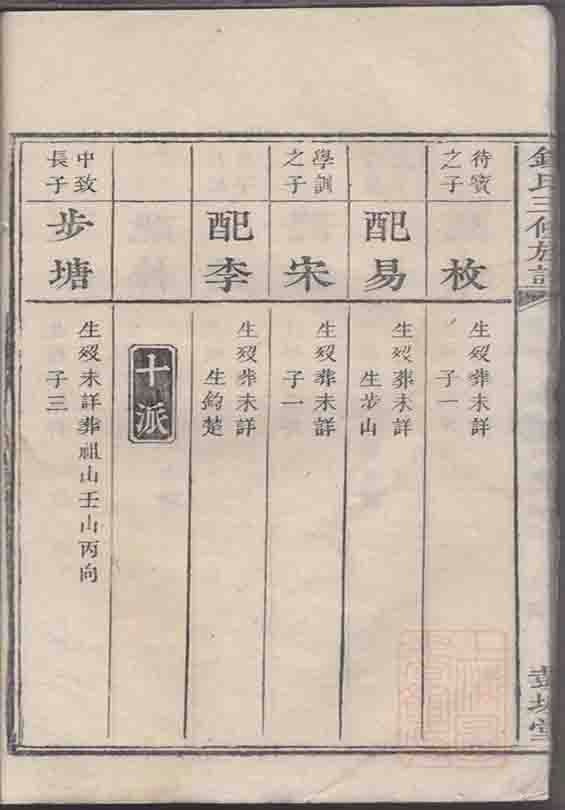 待賓
之子
枚
生歿葬未詳
子一
配易
生歿葬未詳
生步山
學訓
之子
宋
生歿葬未詳
子一
配李
生歿葬未詳
生鈞楚
十派
中致
長子
步塘
生歿未詳葬祖山壬山丙向
子三